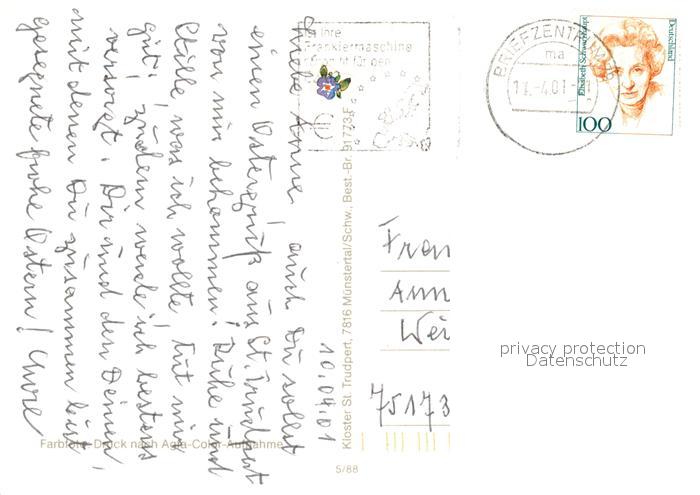 10.04.01
Liebe Anne, auch Du sollst
einen Ostergruß aus St. Trudpert
von mir bekommen! Ruhe und
Stille was ich wollte, tut mir
gut! Zudem werde ich bestens
versorgt. Dir und den Deinen,
mit denen Du zusammen bist
gesegnete frohe Ostern!
Ist Ihre
Frankiermaschine
für den
BRIEFZENTRUM
ma
-4.01-
Elisabeth Schwarzhaupt
Deutschland
100
Frau
Ann
Wei
75173
Kloster St. Trudpert, 7816 Münstertal/Schw., Best.-Br. 91773 F
Farbfoto-Druck nach Agfa-Color-Aufnahme
5/88
privacy protection
Datenschutz